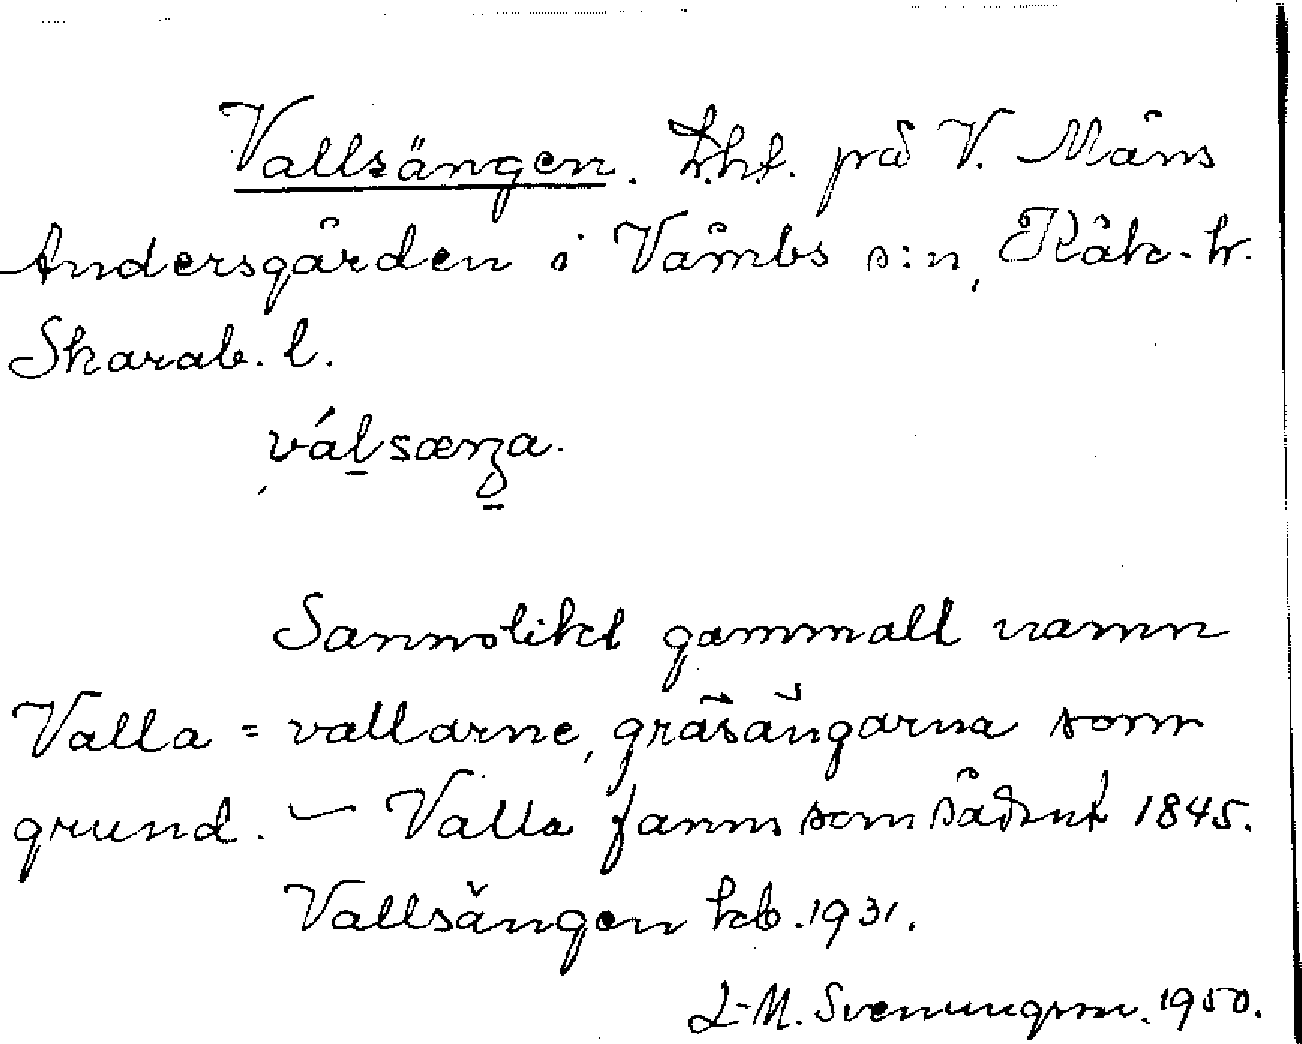 Vallsängen. Lht. på V. Måns
Andersgården i Våmbs s:n, Kåk. hr.
Skarab. l.
válsæŋa.
Sannolikt gammalt namn
Valla = vallarne, gräsängarna som
grund. – Valla fanns som sådant 1845.
Vallsängen kb. 1931.
L-M. Svenungsson. 1950.